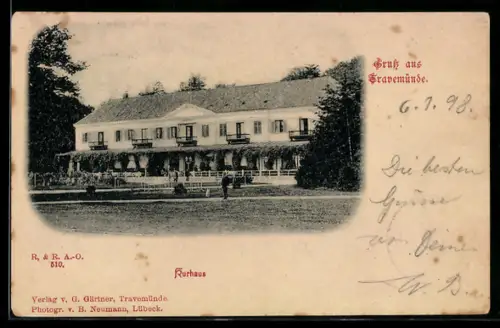 Gruß aus
Travemünde.
6.7.98.
Die besten
Grüsse
von Deinem
W. B.
R. & R. A.-O.
510.
Kurhaus
Verlag v. G. Gärtner, Travemünde
Photogr. v. H. Neumann, Lübeck.